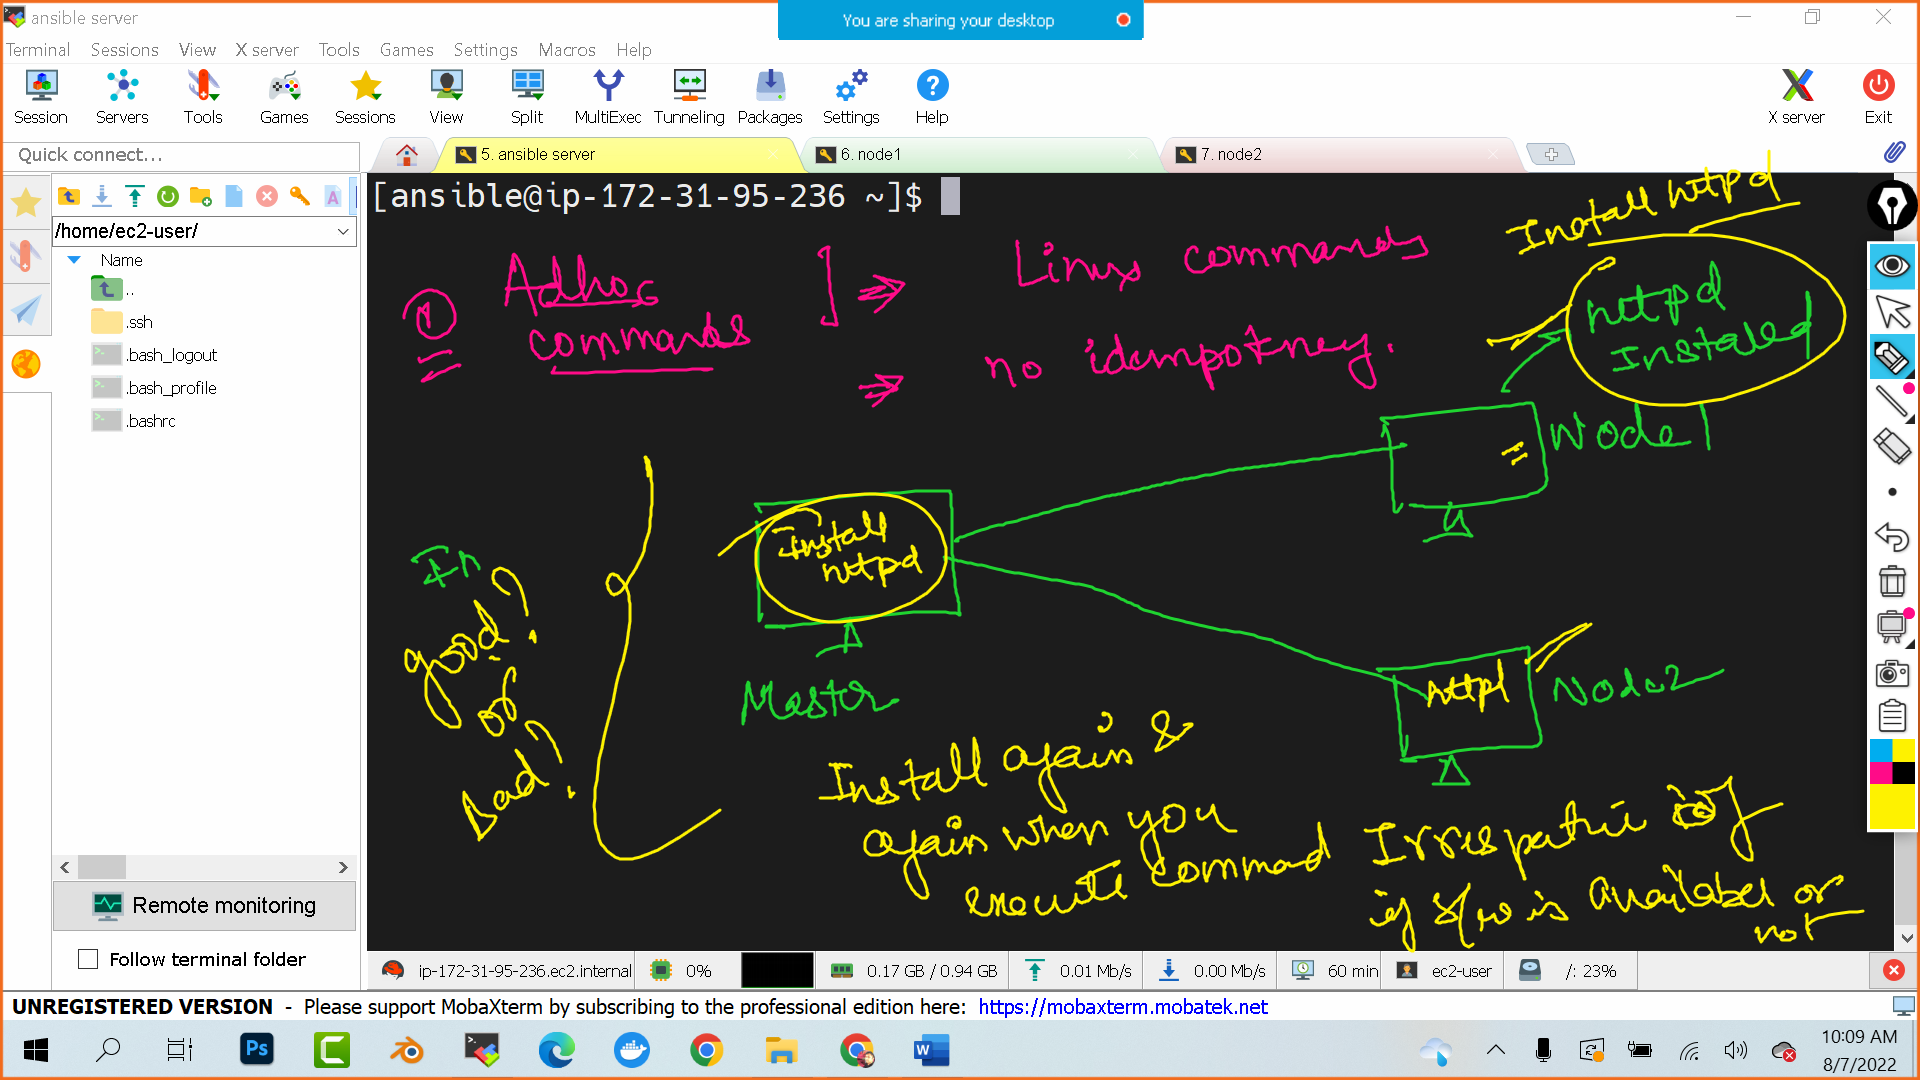 ansible server
You are sharing your desktop
Terminal Sessions View X server Tools Games Settings Macros Help
Session Servers Tools Games Sessions View Split MultiExec Tunneling Packages Settings Help X server Exit
Quick connect...
5. ansible server
6. node1
7. node2
/home/ec2-user/
Name
..
.ssh
.bash_logout
.bash_profile
.bashrc
[ansible@ip-172-31-95-236 ~]$
Install httpd
① Adhoc
commands
Linux commands
no idempotency.
httpd
Installed
Node1
Install
httpd
Master
Node2
In
good?
or
bad?
Install again &
again when you
execute command
of
if s/w is
or
not
Remote monitoring
Follow terminal folder
ip-172-31-95-236.ec2.internal 0% 0.17 GB / 0.94 GB 0.01 Mb/s 0.00 Mb/s 60 min ec2-user /: 23%
UNREGISTERED VERSION - Please support MobaXterm by subscribing to the professional edition here: https://mobaxterm.mobatek.net
10:09 AM
8/7/2022